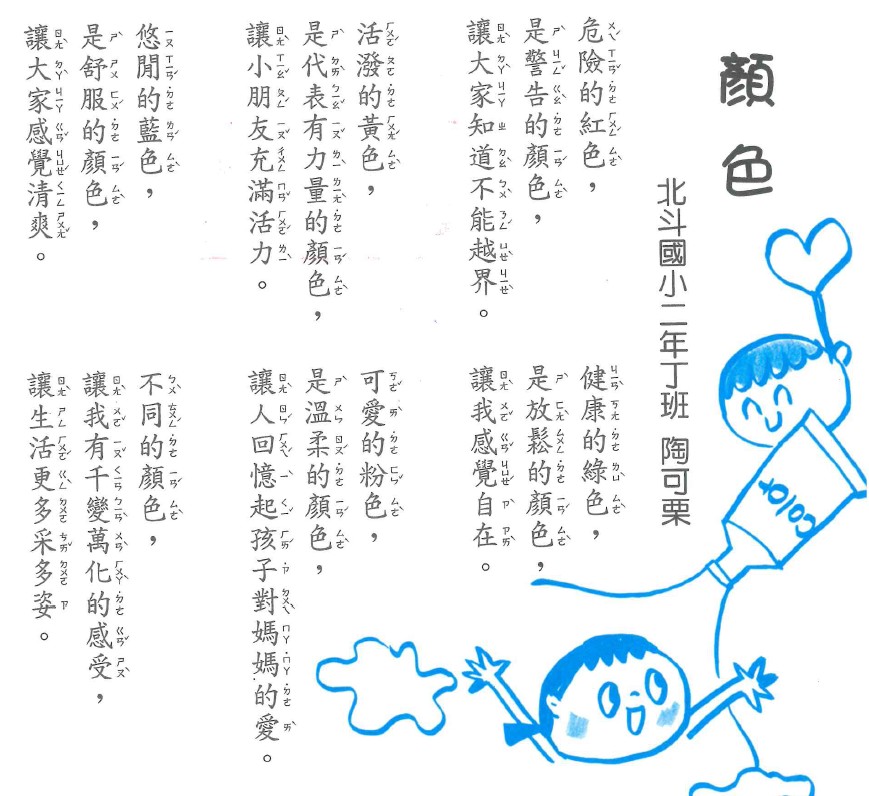 顏色
北斗國小二年丁班 陶可栗
危險的紅色，
是警告的顏色，
讓大家知道不能越界。
健康的綠色，
是放鬆的顏色，
讓我感覺自在。
活潑的黃色，
是代表有力量的顏色，
讓小朋友充滿活力。
可愛的粉色，
是溫柔的顏色，
讓人回憶起孩子對媽媽的愛。
悠閒的藍色，
是舒服的顏色，
讓大家感覺清爽。
不同的顏色，
讓我有千變萬化的感受，
讓生活更多采多姿。